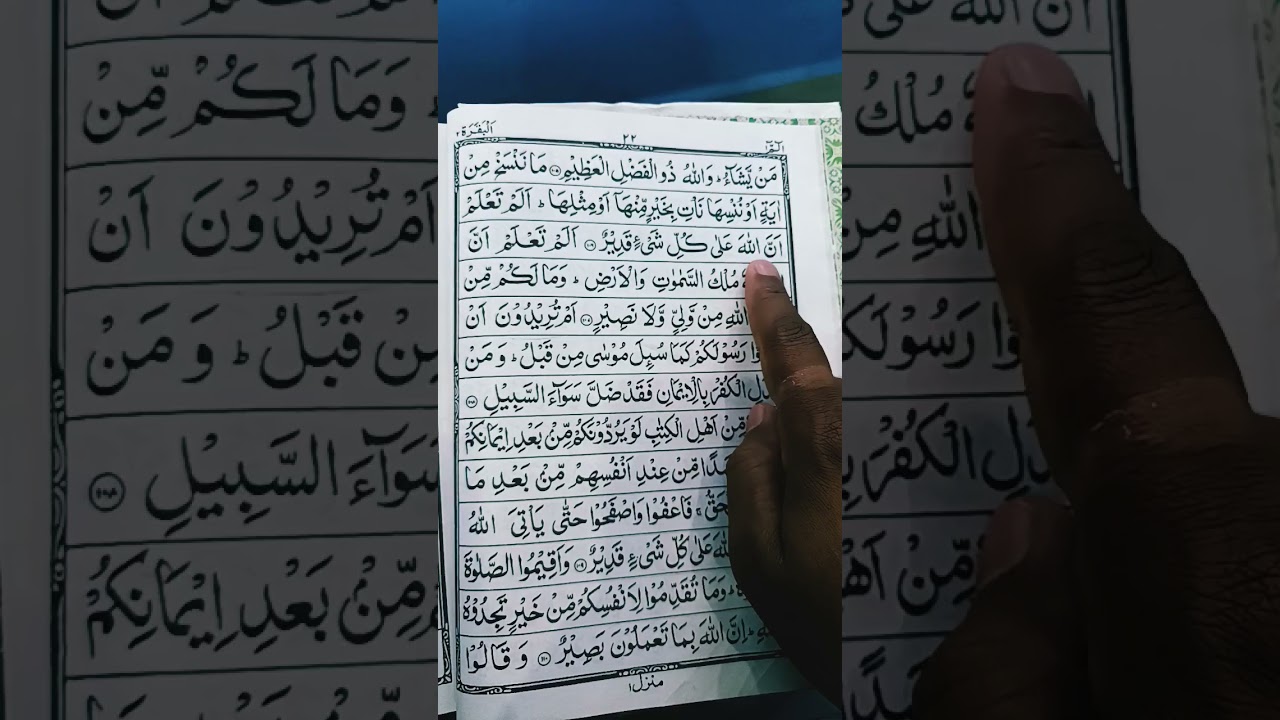 اَلْبَقَرَة ٢
٢٢
الٓمّٓ ١
مَنْ يَّشَآءُ ؕ وَاللّٰهُ ذُو الْفَضْلِ الْعَظِيْمِ ﴿۱۰۵﴾ مَا نَنْسَخْ مِنْ
اٰيَةٍ اَوْ نُنْسِهَا نَاْتِ بِخَيْرٍ مِّنْهَاۤ اَوْ مِثْلِهَا ؕ اَلَمْ تَعْلَمْ
اَنَّ اللّٰهَ عَلٰى كُلِّ شَىْءٍ قَدِيْرٌ ﴿۱۰۶﴾ اَلَمْ تَعْلَمْ اَنَّ
مُلْكُ السَّمٰوٰتِ وَالْاَرْضِ ؕ وَمَا لَكُمْ مِّنْ
اللّٰهِ مِنْ وَّلِيٍّ وَّلَا نَصِيْرٍ ﴿۱۰۷﴾ اَمْ تُرِيْدُوْنَ اَنْ
رَسُوْلَكُمْ كَمَا سُىِٕلَ مُوْسٰى مِنْ قَبْلُ ؕ وَ مَنْ
الْكُفْرَ بِالْاِيْمَانِ فَقَدْ ضَلَّ سَوَآءَ السَّبِيْلِ ﴿۱۰۸﴾
مِّنْ اَهْلِ الْكِتٰبِ لَوْ يَرُدُّوْنَكُمْ مِّنْۢ بَعْدِ اِيْمَانِكُمْ
مِّنْ عِنْدِ اَنْفُسِهِمْ مِّنْۢ بَعْدِ مَا
فَاعْفُوْا وَاصْفَحُوْا حَتّٰى يَاْتِىَ اللّٰهُ
عَلٰى كُلِّ شَىْءٍ قَدِيْرٌ ﴿۱۰۹﴾ وَاَقِيْمُوا الصَّلٰوةَ
وَمَا تُقَدِّمُوْا لِاَنْفُسِكُمْ مِّنْ خَيْرٍ تَجِدُوْهُ
اِنَّ اللّٰهَ بِمَا تَعْمَلُوْنَ بَصِيْرٌ ﴿۱۱۰﴾ وَ قَالُوْا
منزل ۱